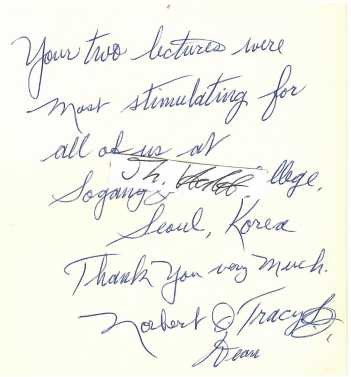 Your two lectures were
most stimulating for
all of us at
Sogang llege,
Seoul, Korea
Thank you very much.
Norbert J Tracy
Dean